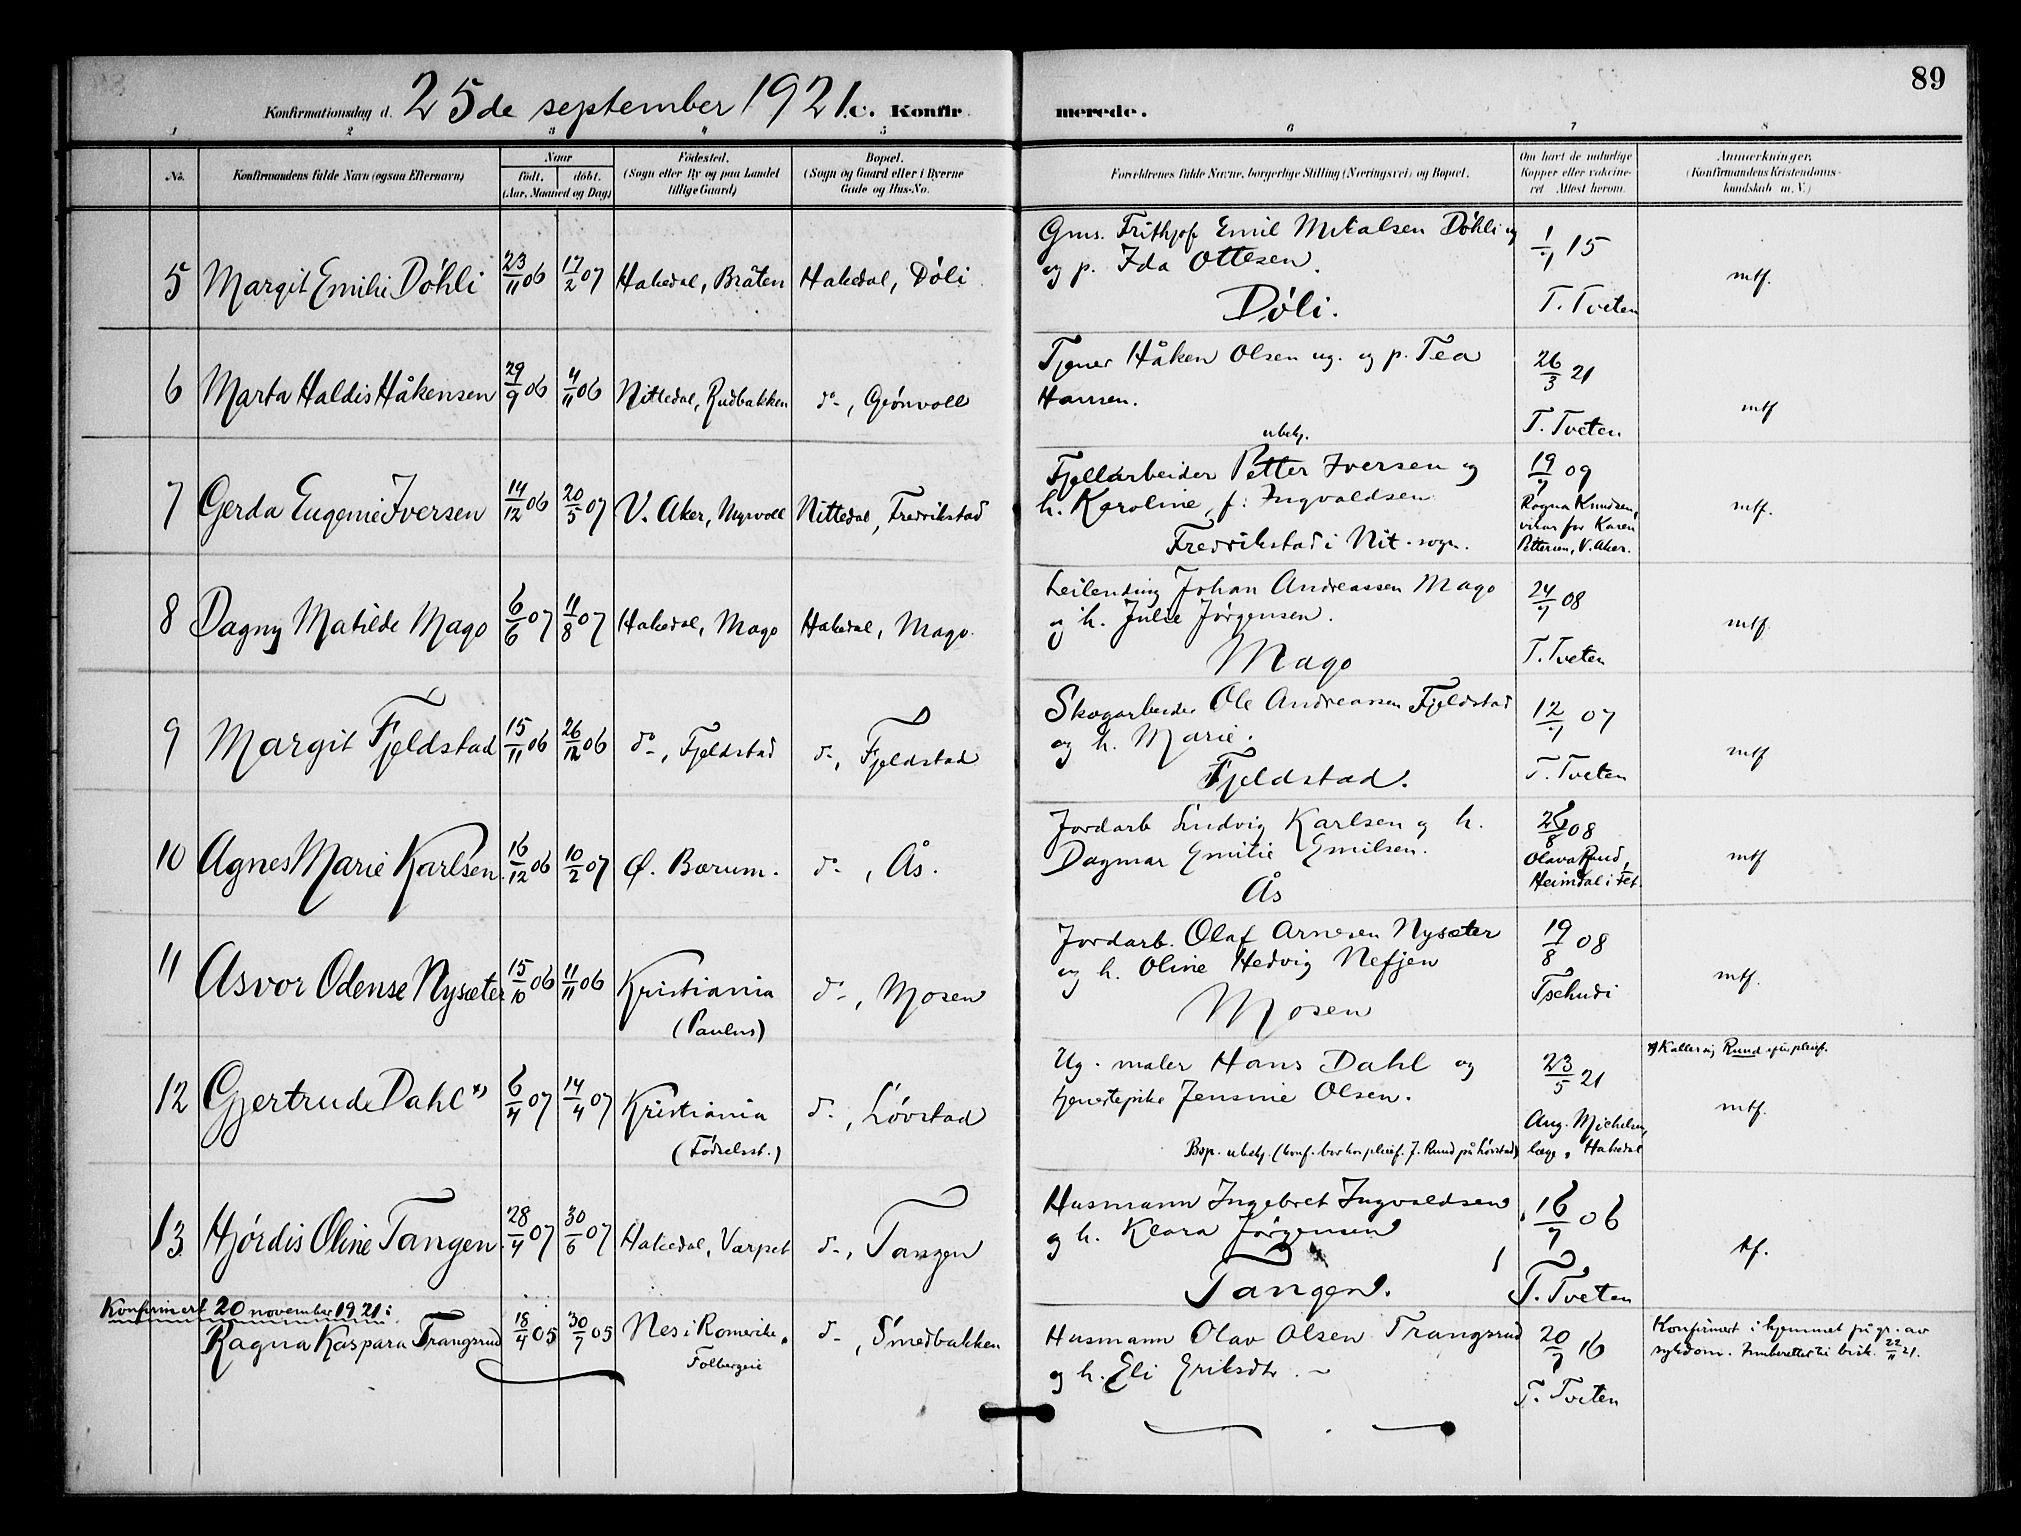 89
Konfirmationsdag d. 25de september 1921. c. Konfirmerede.
1 2 3 4 5 6 7 8
No.
Konfirmandens fulde Navn (ogsaa Efternavn)
Naar
født. døbt.
(Aar, Maaned og Dag)
Fødested.
(Sogn eller By og paa Landet
tillige Gaard)
Bopæl.
(Sogn og Gaard eller i Byerne
Gade og Hus-No.
Forældrenes fulde Navne, borgerlige Stilling (Næringsvei) og Bopæl.
Om havt de naturlige
Kopper eller vakcine-
ret Attest herom.
Anmærkninger.
(Konfirmandens Kristendoms-
kundskab m. V.)
5 Margit Emilie Døhli 23/11 06 17/2 07 Hakedal, Bråten Hakedal, Døli
Gms. Frithjof Emil Døhli ug
og p. Ida Ottesen.
Døli.
1/7 15
T. Tveten
mtf.
6 Marta Haldis Håkensen 29/9 06 4/11 06 Nittedal, Rudbakken do-, Grønvoll
Tjener Håken Olsen ug. og p. Tea
Hansen.
ubekj.
26/3 21
T. Tveten
mtf
7 Gerda Eugenie Iversen 14/12 06 20/5 07 V. Aker, Myrvoll Nittedal, Fredrikstad
Fjellarbeider Petter Iversen og
h. Karoline, f. Ingvaldsen
Fredrikstad i Nit. sogn.
19/7 09
Ragna Knudsen,
vikar for Karen
Pettersen, V. Aker.
mtf.
8 Dagny Matilde Mago 6/6 07 11/8 07 Hakedal, Mago Hakedal, Mago.
Leilending Johan Andreassen Mago
og h. Julie Jørgensen.
Mago
24/7 08
T. Tveten
mtf.
9 Margit Fjeldstad 15/11 06 26/12 06 do-, Fjeldstad d-, Fjeldstad
Skogarbeider Ole Andreassen Fjeldstad
og h. Marie.
Fjeldstad.
12/7 07
T. Tveten
mtf
10 Agnes Marie Karlsen. 16/12 06 10/2 07 Ø. Bærum. d-, Ås.
Jordarb Ludvig Karlsen og h.
Dagmar Emilie Emilsen.
Ås
/8 08
Olava Rud,
Heimdal i Fet.
mtf
11 Asvor Odense Nysæter 15/10 06 11/11 06 Kristiania d-, Mosen
(Paulus)
Jordarb. Olaf Arnesen Nysæter
og h. Oline Hedvig Nefjen
Mosen
19/8 08
Tschudi
mtf.
12 Gjertrude Dahl x) 6/4 07 14/4 07 Kristiania d-, Løvstad
(Fødselsst.)
Ug. maler Hans Dahl og
tjenestepike Jensine Olsen.
Bop. ubekj. (konf. bor hos pleief. J. Ruud på Løvstad)
23/5 21
Aug. Michelsen,
læge, Hakedal
x) Kaller sig Ruud efter pleief.
mtf.
13 Hjørdis Oline Tangen. 28/4 07 30/6 07 Hakedal, Varpet d-, Tangen
Husmann Ingebret Ingvaldsen
og h. Klara Jørgensen
Tangen.
16/7 06
T. Tveten
tf.
Konfirmert 20 november 1921:
Ragna Kaspara Trangsrud 18/4 05 30/7 05 Nes i Romerike, d-, Smedbakken
Folbergeie
Husmann Olav Olsen Trangsrud
og h. Eli Eriksdtr.
20/7 16
T. Tveten
Konfirmert i hjemmet på gr. av
sykdom. Innberettet til bisk. 22/11 21.